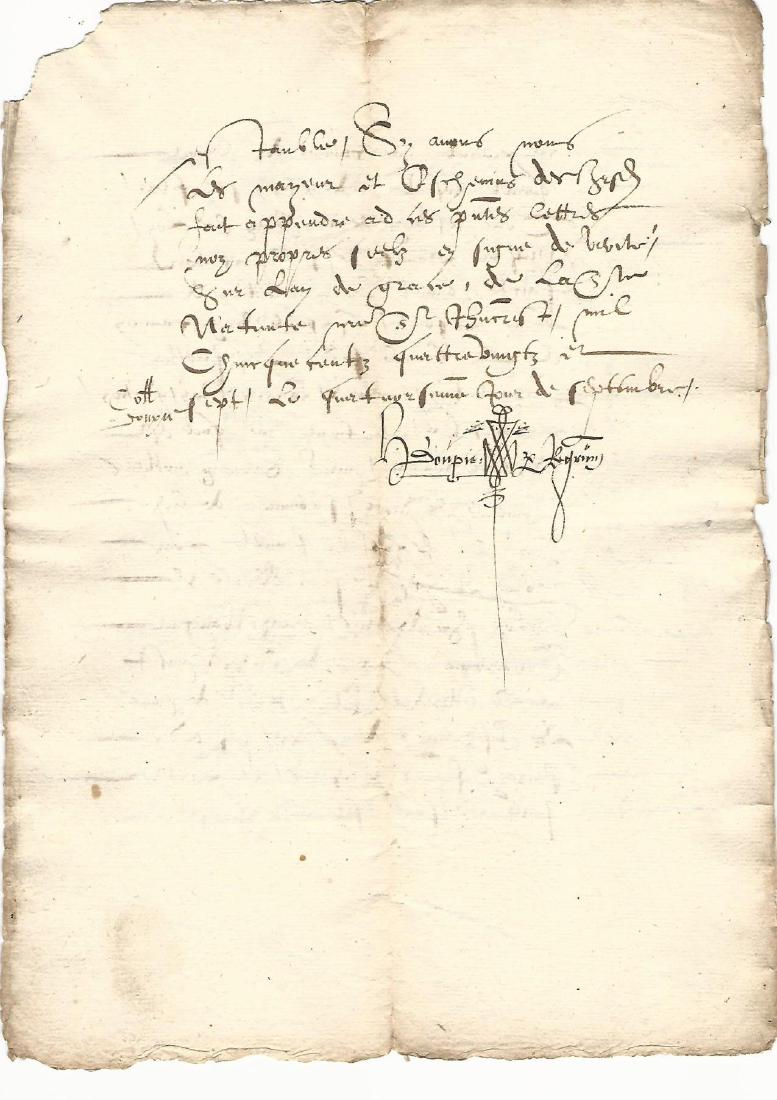 et stable, Sy avons nous
Les mayeur et Eschevins
fait appendre ad ces pntes lettres
noz propres seelz en signe de verite,
Sur Lan de grace, de La
Nativite nre Sr Jhucrist, mil
Chincque centz quattrevingtz et
sept, Le quatuorseme Jour de septembre,